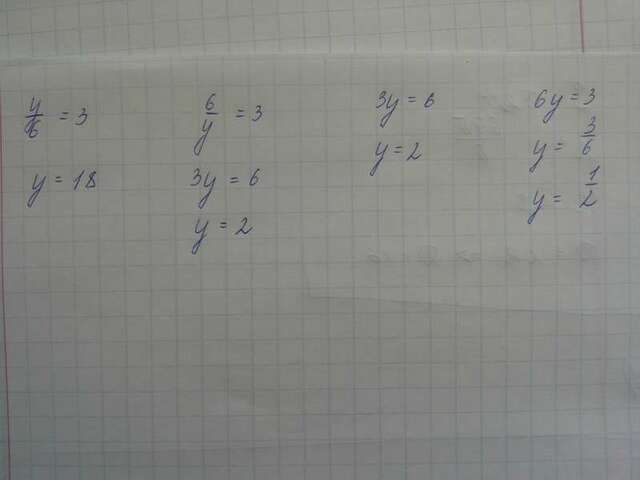 y/6 = 3
y = 18
6/y = 3
3y = 6
y = 2
3y = 6
y = 2
6y = 3
y = 3/6
y = 1/2